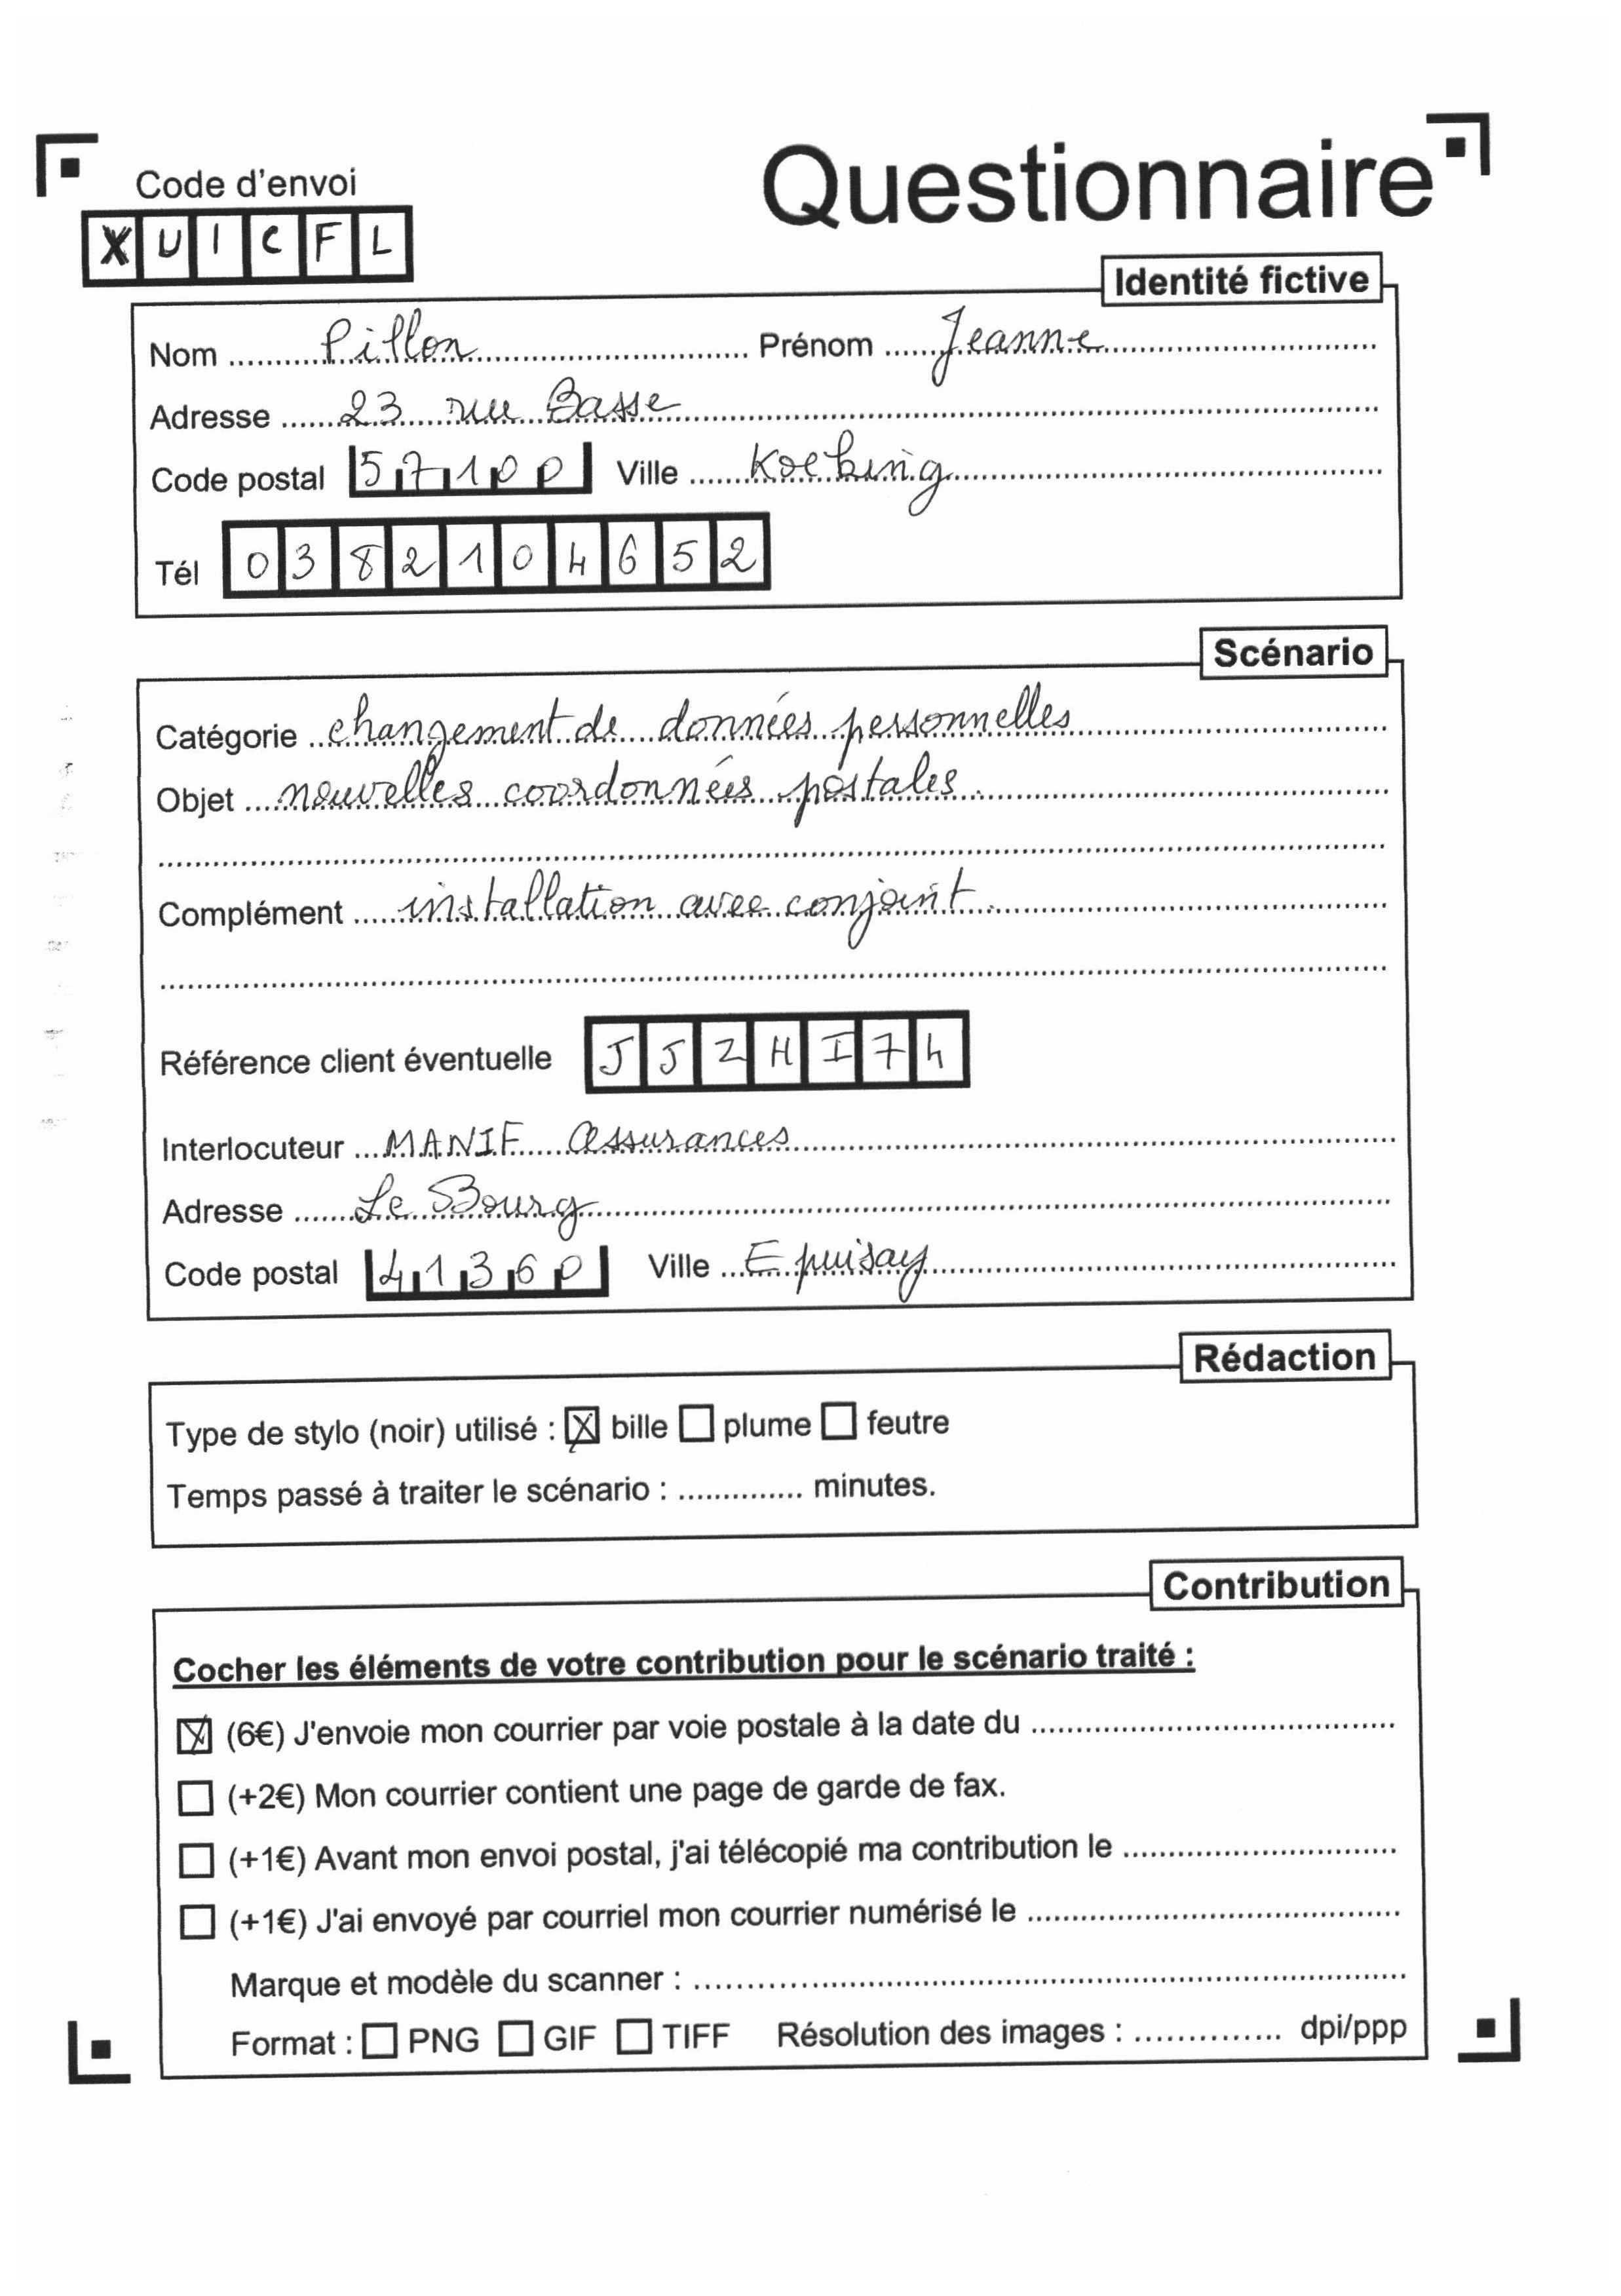 Questionnaire
Code d'envoi
XUICFL
Identité fictive
Nom Pillon Prénom Jeanne
Adresse 23 rue Basse
Code postal 57100 Ville Koeking
Tél 0382104652
Scénario
Catégorie changement de données personnelles
Objet nouvelles coordonnées postales.
Complément installation avec conjoint.
Référence client éventuelle JJZHI74
Interlocuteur MANIF Assurances
Adresse Le Bourg
Code postal 41360 Ville Epuisay
Rédaction
Type de stylo (noir) utilisé : ☒ bille ☐ plume ☐ feutre
Temps passé à traiter le scénario : .............. minutes.
Contribution
Cocher les éléments de votre contribution pour le scénario traité :
☒ (6€) J'envoie mon courrier par voie postale à la date du
☐ (+2€) Mon courrier contient une page de garde de fax.
☐ (+1€) Avant mon envoi postal, j'ai télécopié ma contribution le
☐ (+1€) J'ai envoyé par courriel mon courrier numérisé le
Marque et modèle du scanner :
Format : ☐ PNG ☐ GIF ☐ TIFF Résolution des images : .............. dpi/ppp